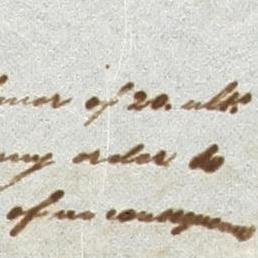 of 20. ulto.
my order to
of no consequence